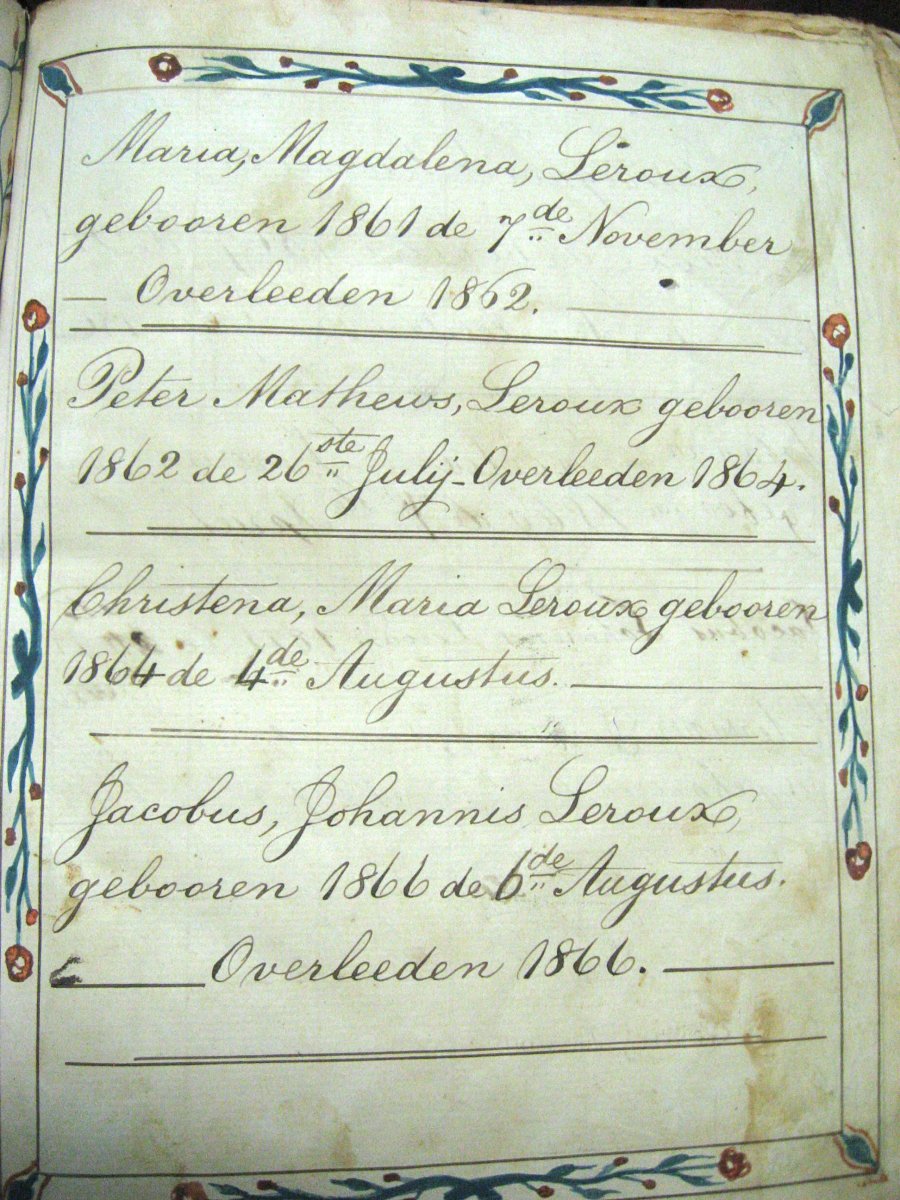 Maria, Magdalena, Leroux,
gebooren 1861 de 7de November
Overleeden 1862.
Peter Mathews, Leroux gebooren
1862 de 26ste Julij - Overleeden 1864.
Christena, Maria Leroux gebooren
1864 de 4de Augustus.
Jacobus, Johannis Leroux,
gebooren 1866 de 6de Augustus.
Overleeden 1866.